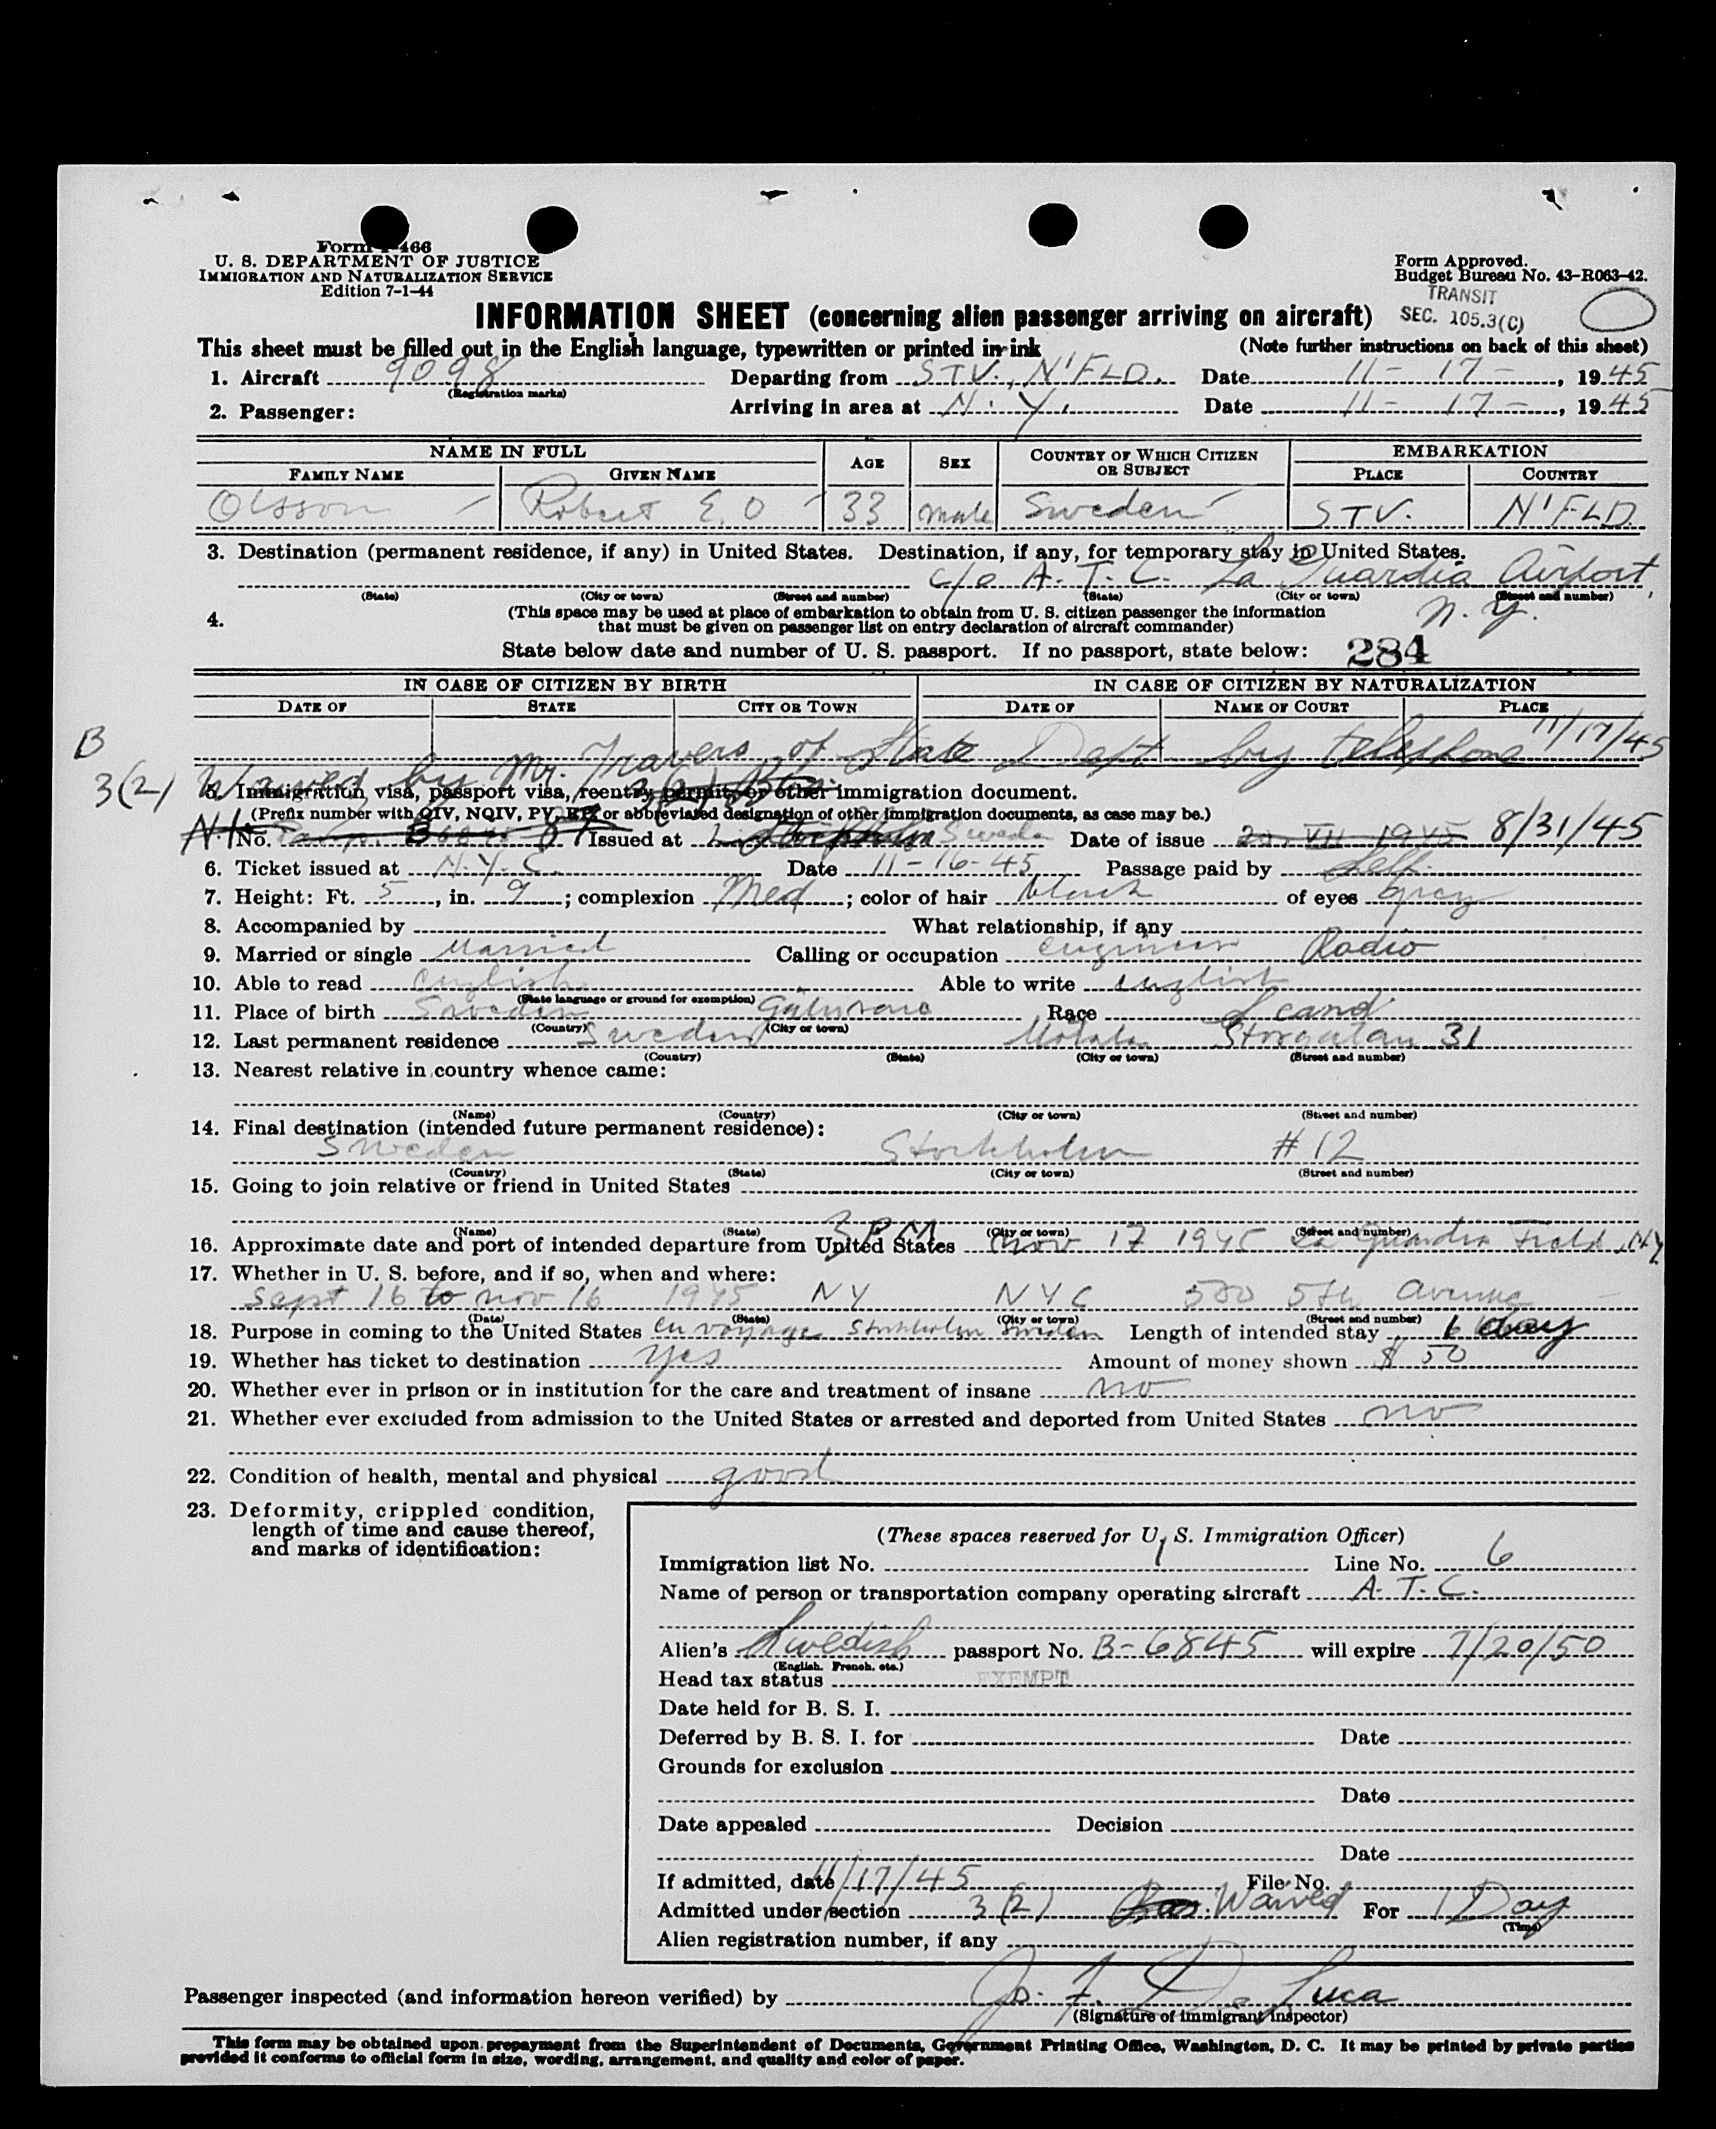 Form I-466
U. S. DEPARTMENT OF JUSTICE
IMMIGRATION AND NATURALIZATION SERVICE
Edition 7-1-44
Form Approved.
Budget Bureau No. 43-R063-42.
TRANSIT
SEC. 105.3(C)
INFORMATION SHEET (concerning alien passenger arriving on aircraft)
This sheet must be filled out in the English language, typewritten or printed in ink (Note further instructions on back of this sheet)
1. Aircraft 9098 Departing from STV., N'FLD. Date 11 - 17 -, 1945
(Registration marks)
2. Passenger: Arriving in area at N. Y. Date 11 - 17 -, 1945
NAME IN FULL AGE SEX COUNTRY OF WHICH CITIZEN OR SUBJECT EMBARKATION
FAMILY NAME GIVEN NAME PLACE COUNTRY
Olsson Robert E. O 33 male Sweden STV. N'FLD.
3. Destination (permanent residence, if any) in United States. Destination, if any, for temporary stay in United States.
c/o A. T. C. La Guardia Airport,
(State) (City or town) (Street and number) (State) (City or town) (Street and number)
N. Y.
4. (This space may be used at place of embarkation to obtain from U. S. citizen passenger the information
that must be given on passenger list on entry declaration of aircraft commander)
State below date and number of U. S. passport. If no passport, state below: 284
IN CASE OF CITIZEN BY BIRTH IN CASE OF CITIZEN BY NATURALIZATION
DATE OF STATE CITY OR TOWN DATE OF NAME OF COURT PLACE
B
3(2) Waived by Mr. Travers of State Dept by telephone 11/17/45
5. Immigration visa, passport visa, reentry permit, or other immigration document.
(Prefix number with QIV, NQIV, PV, RP, or abbreviated designation of other immigration documents, as case may be.)
No. Issued at Stockholm Sweden Date of issue 20 VII 1945 8/31/45
6. Ticket issued at N.Y.C. Date 11-16-45 Passage paid by Self
7. Height: Ft. 5, in. 9; complexion Med; color of hair black of eyes grey
8. Accompanied by What relationship, if any
9. Married or single Married Calling or occupation engineer Radio
10. Able to read english Able to write english
(State language or ground for exemption)
11. Place of birth Sweden Race Scand
(Country) (City or town)
12. Last permanent residence Sweden Motala Storgatan 31
(Country) (State) (City or town) (Street and number)
13. Nearest relative in country whence came:
(Name) (Country) (City or town) (Street and number)
14. Final destination (intended future permanent residence):
Sweden Stockholm # 12
(Country) (State) (City or town) (Street and number)
15. Going to join relative or friend in United States
(Name) (State) (City or town) (Street and number)
3 PM
16. Approximate date and port of intended departure from United States Nov 17 1945 La Guardia Field, N.Y.
17. Whether in U. S. before, and if so, when and where:
Sept 16 to nov 16 1945 NY NYC 500 5th Avenue
(Date) (State) (City or town) (Street and number)
18. Purpose in coming to the United States en voyage Stockholm Sweden Length of intended stay 1 day
19. Whether has ticket to destination yes Amount of money shown $ 50
20. Whether ever in prison or in institution for the care and treatment of insane no
21. Whether ever excluded from admission to the United States or arrested and deported from United States no
22. Condition of health, mental and physical good
23. Deformity, crippled condition,
length of time and cause thereof,
and marks of identification:
(These spaces reserved for U. S. Immigration Officer)
Immigration list No. 1 Line No. 6
Name of person or transportation company operating aircraft A. T. C.
Alien's Swedish passport No. B-6845 will expire 7/20/50
(English, French, etc.)
Head tax status EXEMPT
Date held for B. S. I.
Deferred by B. S. I. for Date
Grounds for exclusion
Date
Date appealed Decision
Date
If admitted, date 11/17/45 File No.
Admitted under section 3(2) Waived For 1 Day
(Time)
Alien registration number, if any
Passenger inspected (and information hereon verified) by Jos. F. De Luca
(Signature of immigrant inspector)
This form may be obtained upon prepayment from the Superintendent of Documents, Government Printing Office, Washington, D. C. It may be printed by private parties
provided it conforms to official form in size, wording, arrangement, and quality and color of paper.